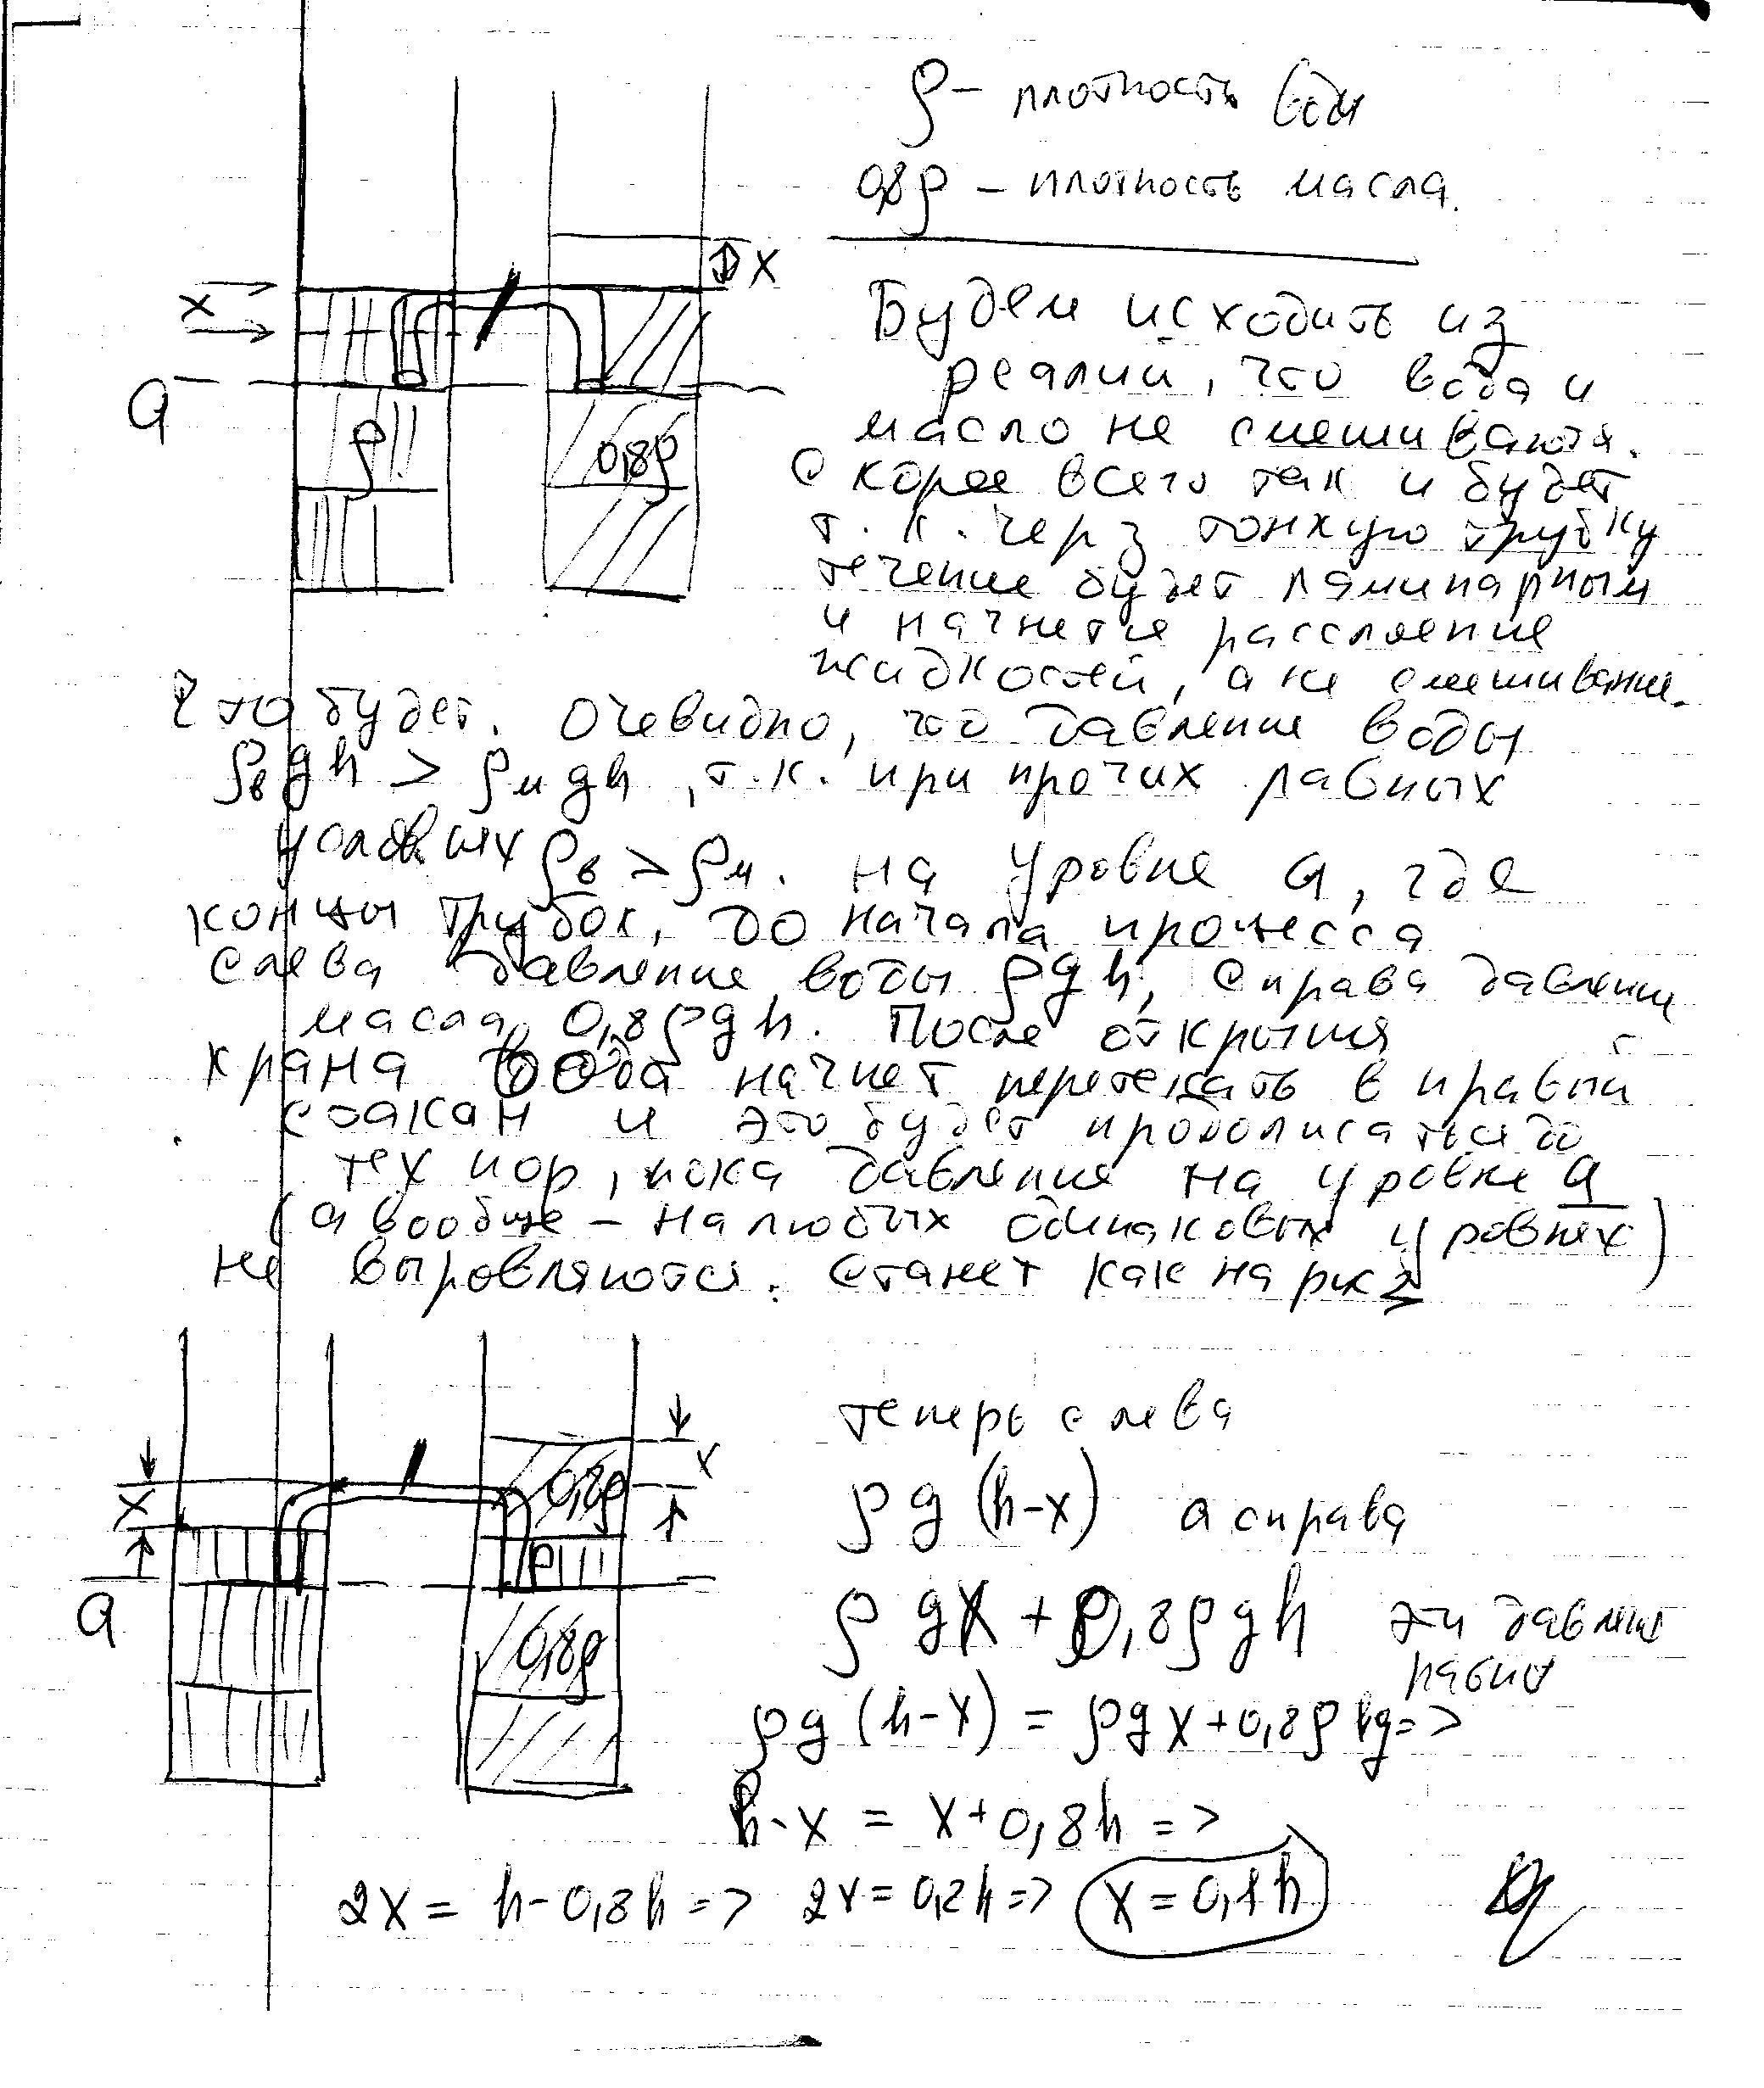 ρ – плотность воды
0,8ρ – плотность масла.
x
x
Будем исходить из
реалий, что вода и
a
масло не смешиваются.
ρ
0,8ρ
Скорее всего так и будет
т.к. через тонкую трубку
течение будет ламинарным
и начнется расслоение
жидкостей, а не смешивание.
Что будет. Очевидно, что давление воды
ρв g h > ρм g h, т.к. при прочих равных
условиях ρв > ρм. На уровне a, где
концы трубок, до начала процесса
слева давление воды ρgh, справа давление
масла 0,8ρgh. После открытия
крана вода начнет перетекать в правый
стакан и это будет продолжаться до
тех пор, пока давления на уровне a
(а вообще – на любых одинаковых уровнях)
не выровняются. Станет как на рис 2
теперь слева
x
0,8ρ
x
ρg(h-x) а справа
ρ
a
ρgx + 0,8ρgh эти давления
0,8ρ
равны
ρg(h-x) = ρgx+0,8ρhg =>
h-x = x+0,8h =>
2x = h-0,8h => 2x=0,2h => x=0,1h